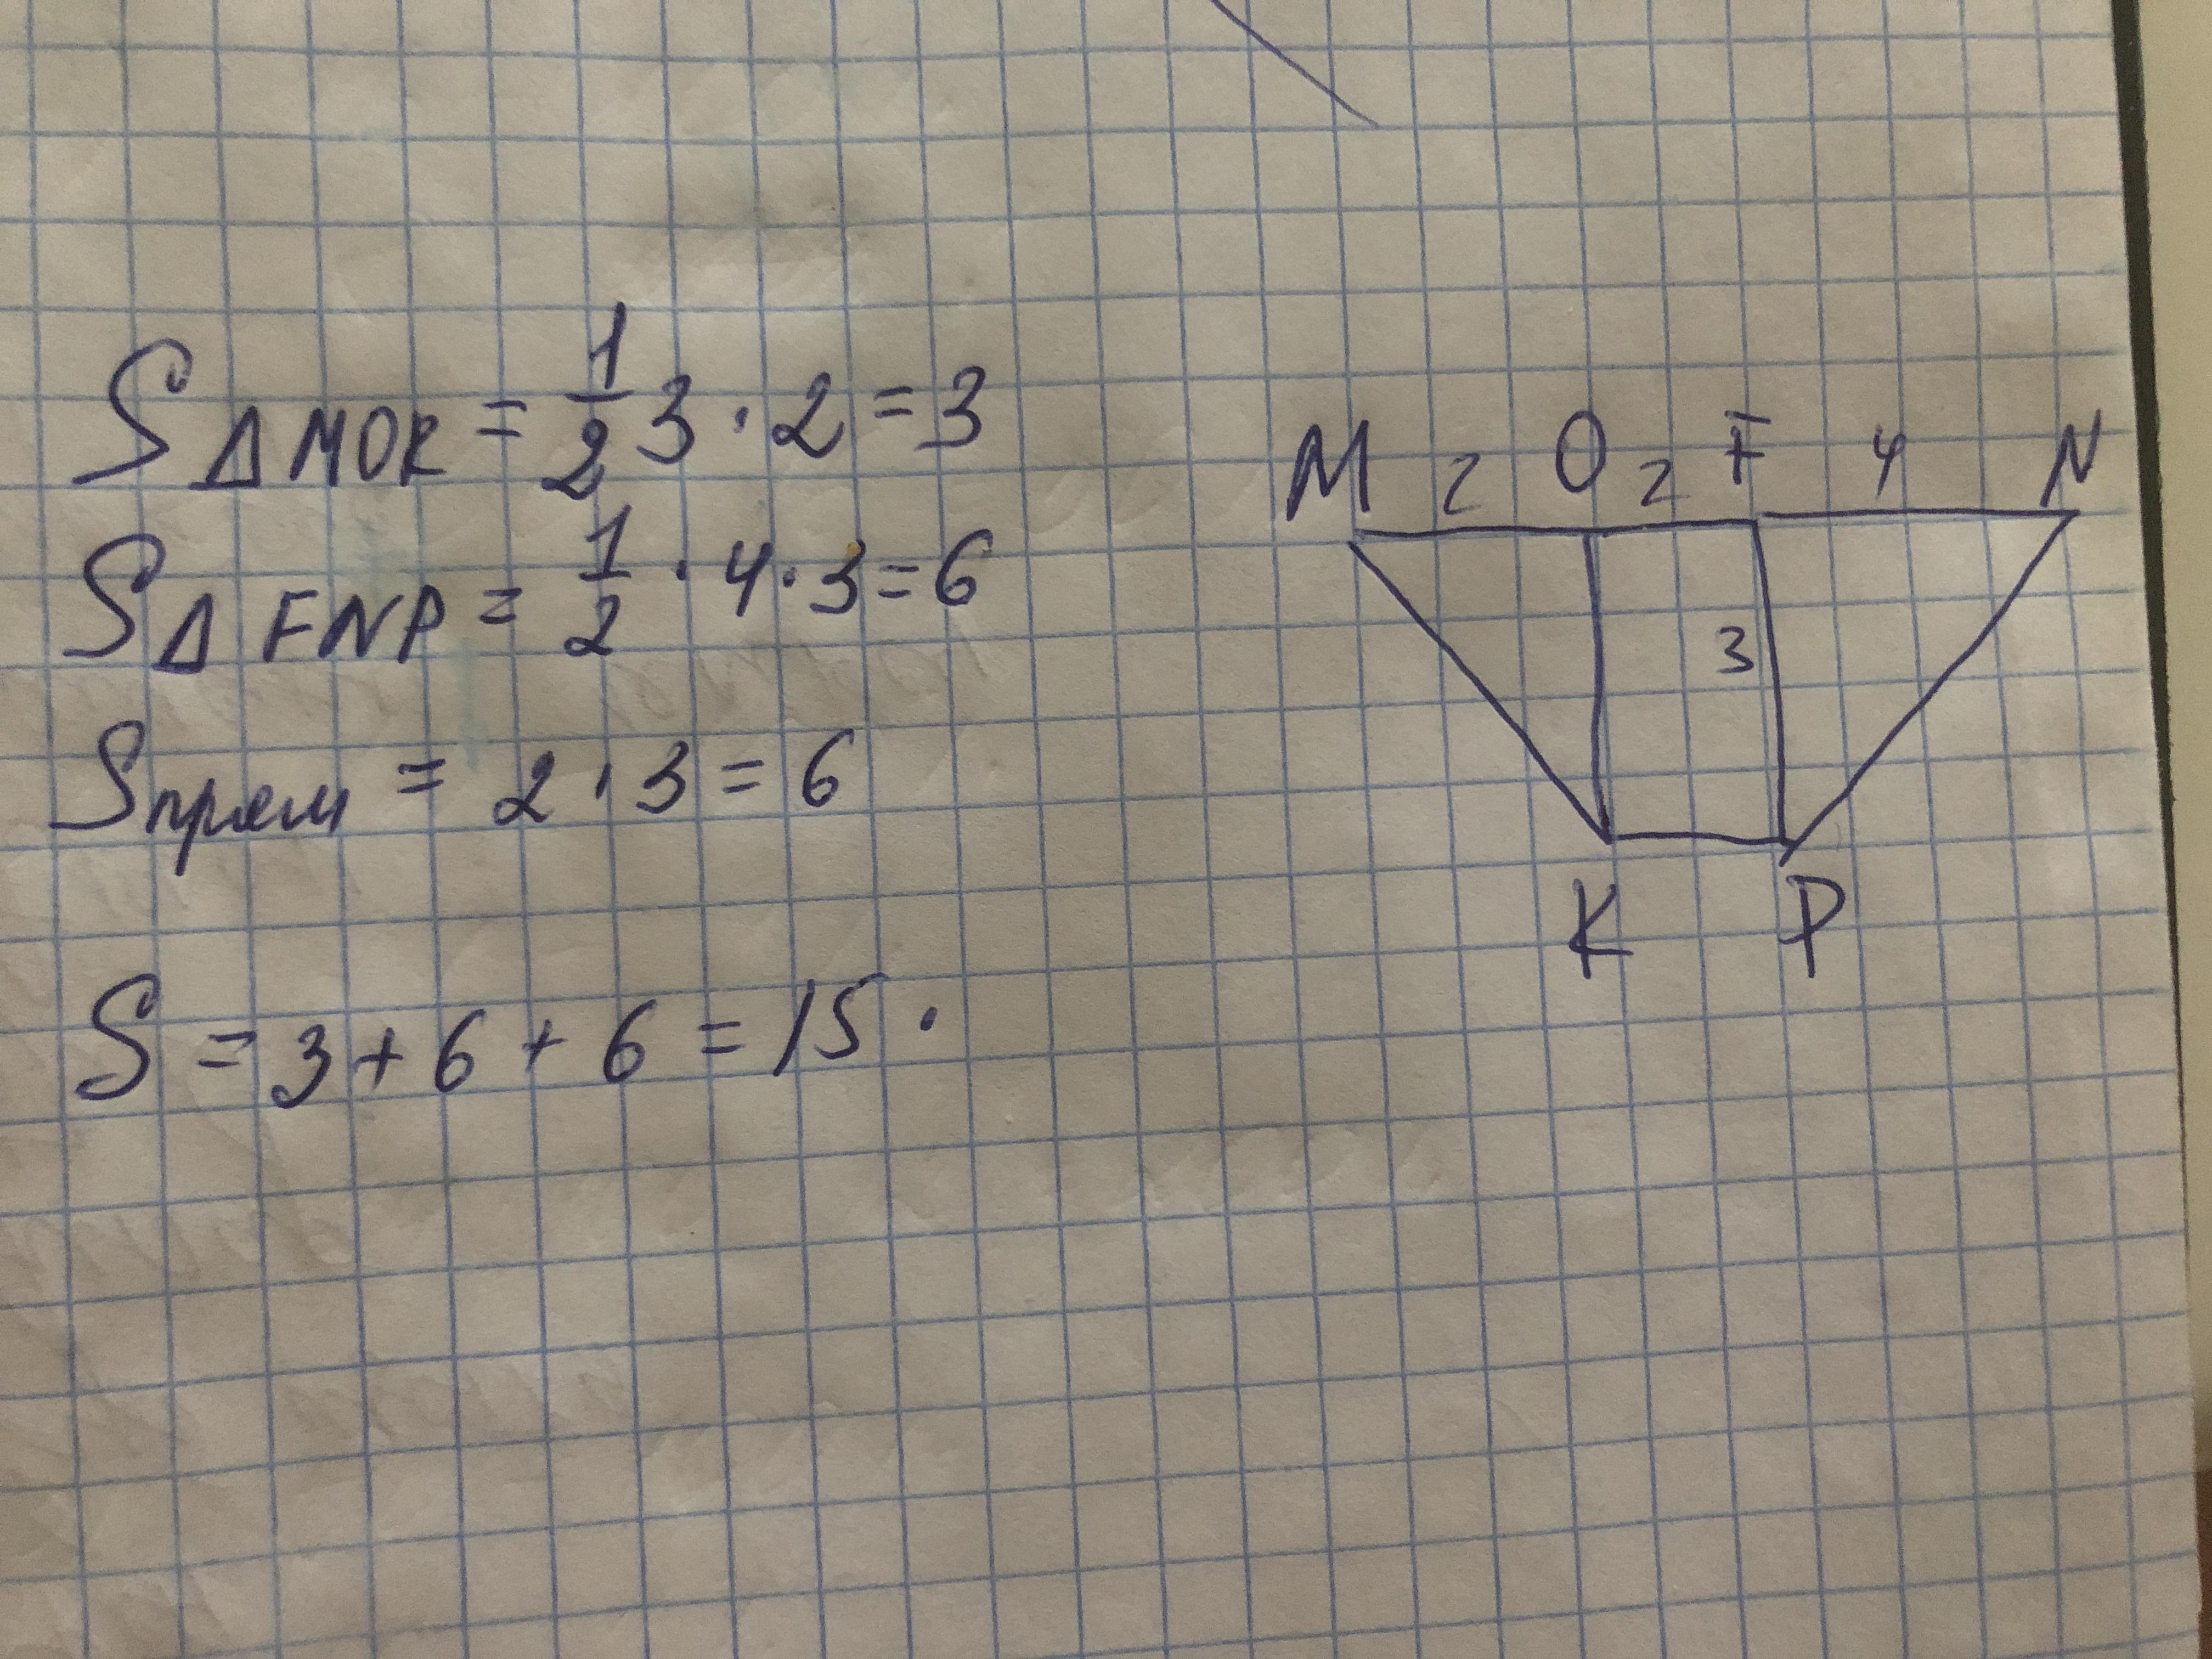 S ΔMOK = 1/2 3 · 2 = 3
S Δ FNP = 1/2 · 4 · 3 = 6
Sпрям = 2 · 3 = 6
S = 3 + 6 + 6 = 15 .
M 2 O 2 F 4 N
3
K P